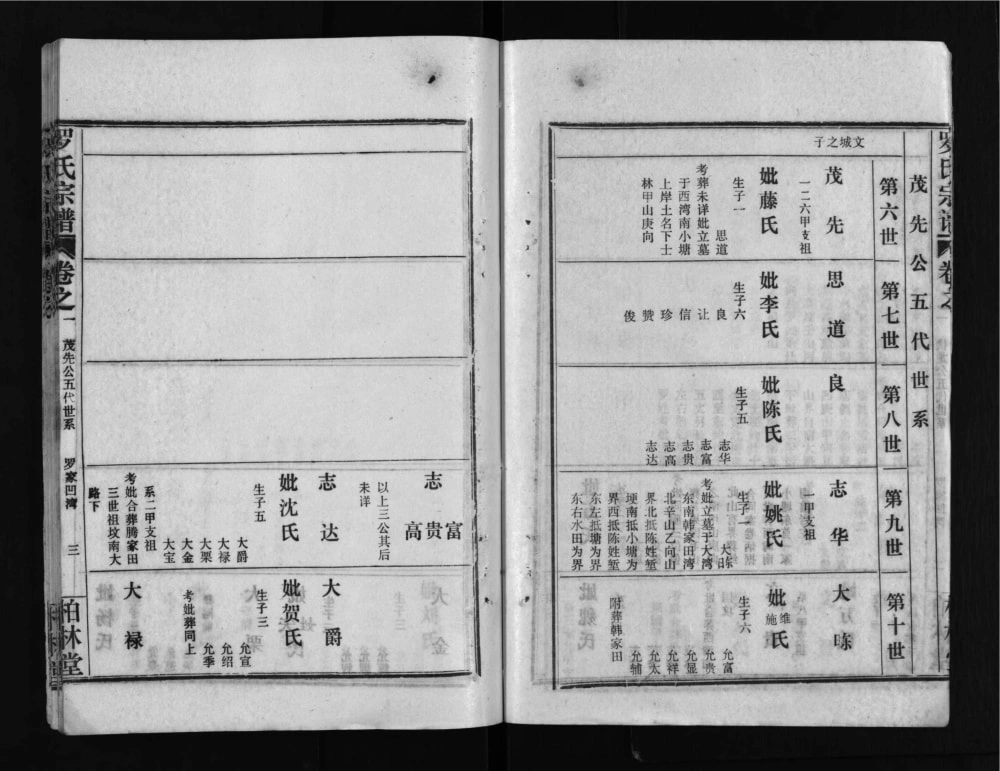 罗氏宗谱
卷之
茂先公五代世系
第六世
第七世
第八世
第九世
第十世
文城之子
茂先
一二六甲支祖
妣藤氏
生子一
思道
考葬未详妣立墓
于西湾南小塘
上岸土名下士
林甲山庚向
思道
妣李氏
生子六
良
让
信
珍
赞
俊
良
妣陈氏
生子五
志华
志富
志贵
志高
志达
志华
一甲支祖
妣姚氏
生子一
大𬀩
考妣立墓于大湾
东南韩家田湾
北辛山乙向山
界北抵陈姓堑
埂南抵小塘为
界西抵陈姓堑
东左抵塘为界
东右水田为界
大𬀩
妣维施氏
生子六
允富
允贵
允显
允祥
允太
允辅
附葬韩家田
志富贵高
以上三公其后
未详
志达
妣沈氏
生子五
大爵
大禄
大栗
大金
大宝
系二甲支祖
考妣合葬腾家田
三世祖坟南大
路下
大爵
妣贺氏
生子三
允宣
允绍
允季
考妣葬同上
大禄
罗氏宗谱
卷之一
茂先公五代世系
罗家凹湾
三
柏林堂